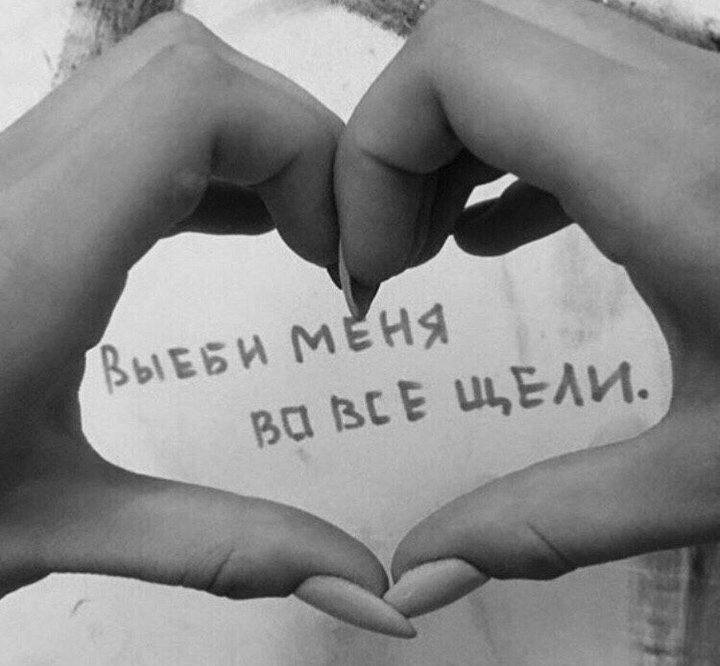 Выеби меня
во все щели.